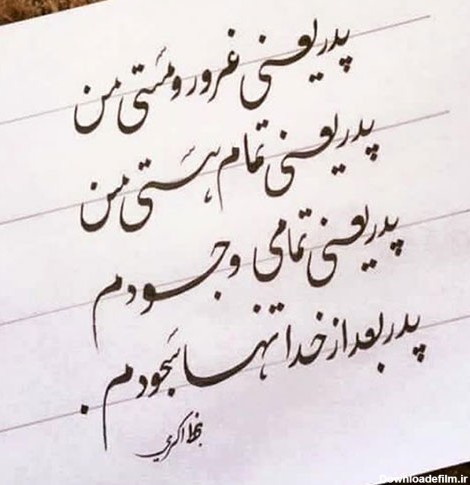 پدر یعنی غرور و مستی من
پدر یعنی تمام هستی من
پدر یعنی تمامی وجودم
پدر بعد از خدا تنها سجودم.
اکبری
Downloadefilm.ir